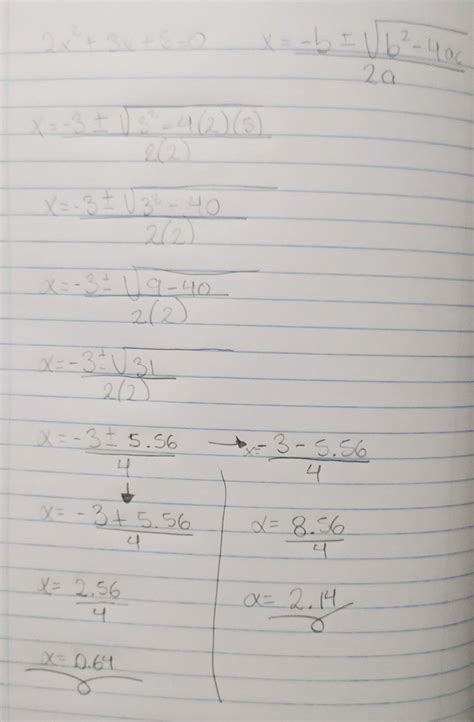 2x² + 3x + 5 = 0    x = -b ± √b² - 4ac / 2a
x = -3 ± √3² - 4(2)(5) / 2(2)
x = -3 ± √3² - 40 / 2(2)
x = -3 ± √9 - 40 / 2(2)
x = -3 ± √31 / 2(2)
x = -3 ± 5.56 / 4 → x = -3 - 5.56 / 4
↓
x = -3 + 5.56 / 4    x = 8.56 / 4
x = 2.56 / 4    x = 2.14
x = 0.64